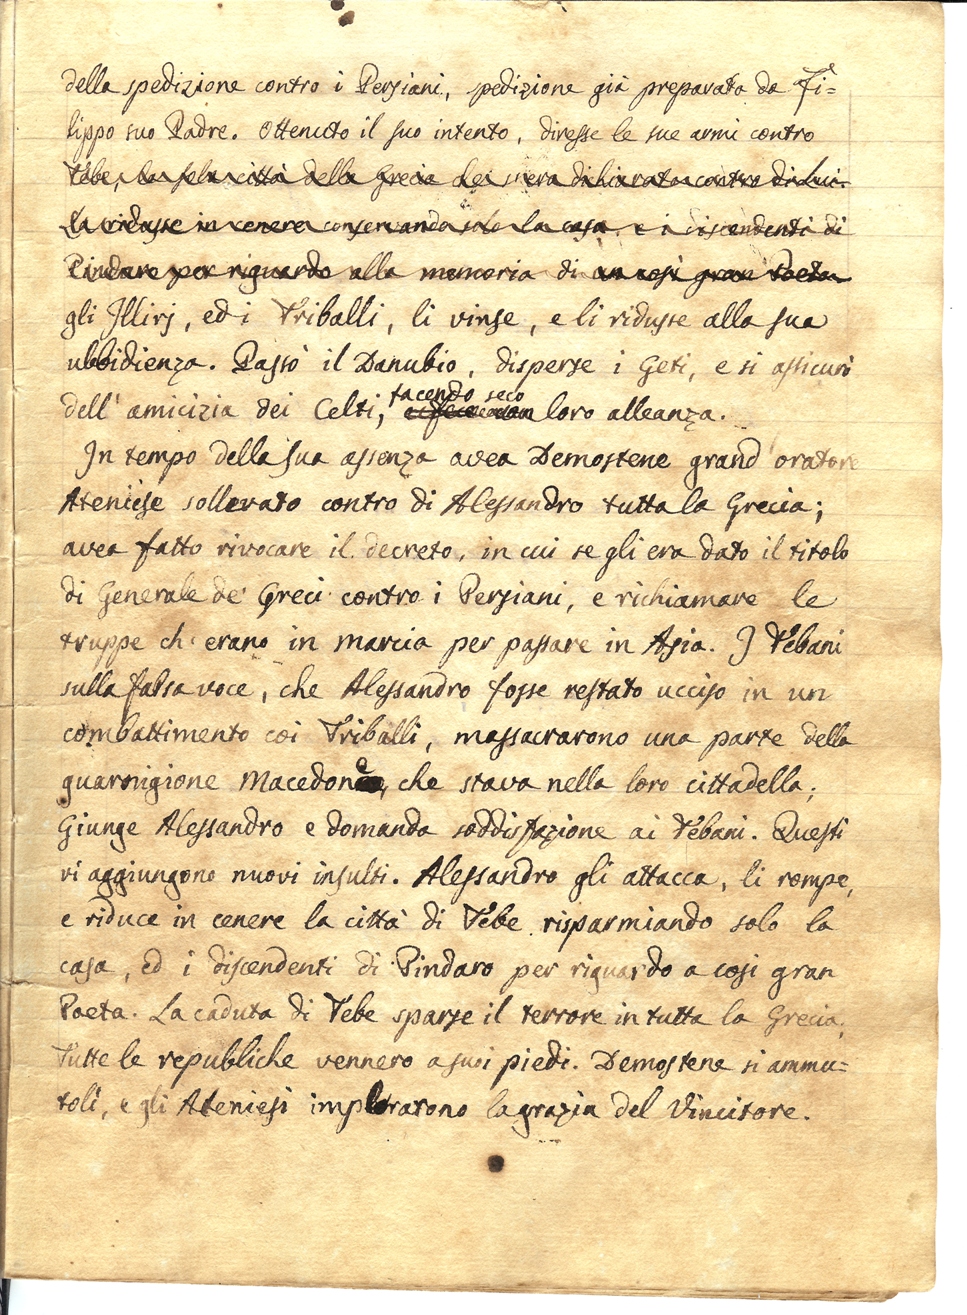 della spedizione contro i Persiani, spedizione già preparata da Fi=
lippo suo Padre. Ottenuto il suo intento, diresse le sue armi contro
Tebe, la sola città della Grecia che si era dichiarata contro di lui.
La ridusse in cenere conservando solo la casa e i discendenti di
Pindaro per riguardo alla memoria di un così gran Poeta
gli Illirj, ed i Triballi, li vinse, e li ridusse alla sua
ubbidienza. Passò il Danubio, disperse i Geti, e si assicurò
dell' amicizia dei Celti, facendo seco loro alleanza.
In tempo della sua assenza avea Demostene grand' oratore
Ateniese sollevato contro di Alessandro tutta la Grecia;
avea fatto rivocare il decreto, in cui se gli era dato il titolo
di Generale de' Greci contro i Persiani, e richiamare le
truppe ch' erano in marcia per passare in Asia. I Tebani
sulla falsa voce, che Alessandro fosse restato ucciso in un
combattimento coi Triballi, massacrarono una parte della
guarnigione Macedone, che stava nella loro cittadella;
Giunge Alessandro e domanda soddisfazione ai Tebani. Questi
vi aggiungono nuovi insulti. Alessandro gli attacca, li rompe,
e riduce in cenere la città di Tebe risparmiando solo la
casa, ed i discendenti di Pindaro per riguardo a così gran
Poeta. La caduta di Tebe sparse il terrore in tutta la Grecia;
Tutte le repubbliche vennero a suoi piedi. Demostene si ammu=
tolì, e gli Ateniesi implorarono la grazia del Vincitore.